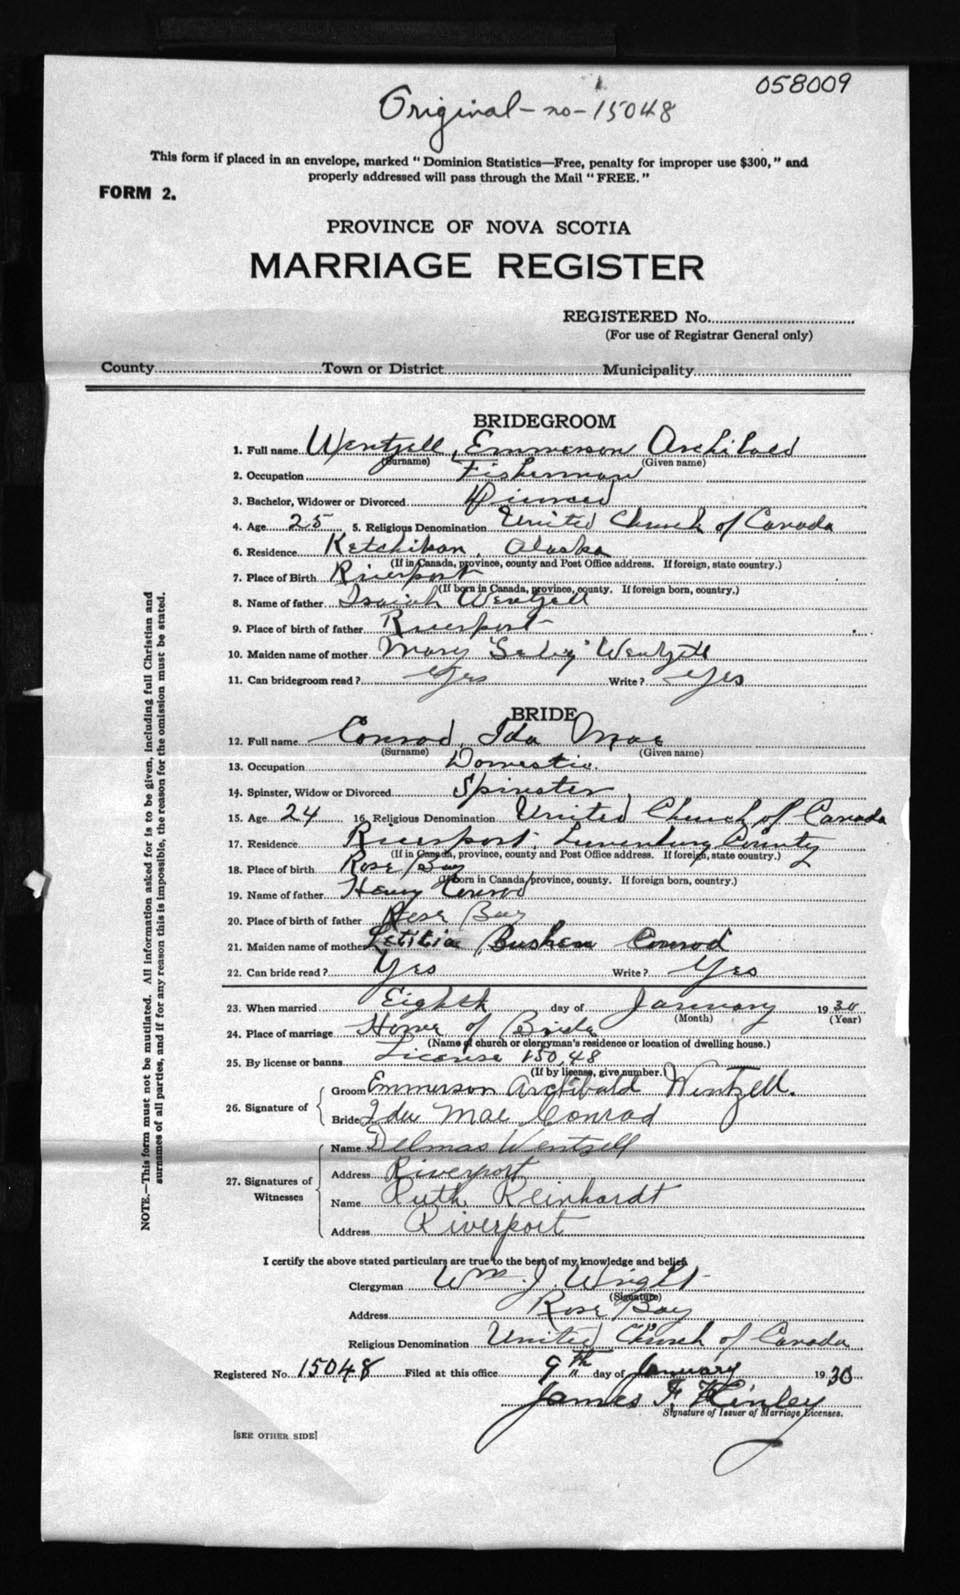 058009
Original - no - 15048
This form if placed in an envelope, marked "Dominion Statistics—Free, penalty for improper use $300," and
properly addressed will pass through the Mail "FREE."
FORM 2.
PROVINCE OF NOVA SCOTIA
MARRIAGE REGISTER
REGISTERED No.
(For use of Registrar General only)
County Town or District Municipality
BRIDEGROOM
1. Full name Wentzell, Emmerson Archibald
(Surname) (Given name)
2. Occupation Fisherman
3. Bachelor, Widower or Divorced Divorced
4. Age 25 5. Religious Denomination United Church of Canada
6. Residence Ketchikan, Alaska
(If in Canada, province, county and Post Office address. If foreign, state country.)
7. Place of Birth Riverport
(If born in Canada, province, county. If foreign born, country.)
8. Name of father Isaiah Wentzell
9. Place of birth of father Riverport
10. Maiden name of mother Mary Wentzell
11. Can bridegroom read? Yes Write? Yes
BRIDE
12. Full name Conrod, Ida Mae
(Surname) (Given name)
13. Occupation Domestic.
14. Spinster, Widow or Divorced Spinster
15. Age 24 16. Religious Denomination United Church of Canada
17. Residence Riverport, Lunenburg County
(If in Canada, province, county and Post Office address. If foreign, state country.)
18. Place of birth Rose Bay
(If born in Canada, province, county. If foreign born, country.)
19. Name of father Henry Conrod
20. Place of birth of father Rose Bay
21. Maiden name of mother Letitia Bushen Conrod
22. Can bride read? Yes Write? Yes
23. When married Eighth day of January 1930
(Month) (Year)
24. Place of marriage Home of Bride
(Name of church or clergyman's residence or location of dwelling house.)
25. By license or banns License 150,48
(If by license, give number.)
26. Signature of Groom Emmerson Archibald Wentzell.
Bride Ida Mae Conrod
27. Signatures of Witnesses Name Delmas Wentzell
Address Riverport
Name Ruth Reinhardt
Address Riverport
I certify the above stated particulars are true to the best of my knowledge and belief.
Clergyman Wm. J. Wright
(Signature)
Address Rose Bay
Religious Denomination United Church of Canada
Registered No. 15048 Filed at this office 9th day of January 1930
James F. Kinley
Signature of Issuer of Marriage Licenses.
[SEE OTHER SIDE]
NOTE.—This form must not be mutilated. All information asked for is to be given, including full Christian and
surnames of all parties, and if for any reason this is impossible, the reason for the omission must be stated.